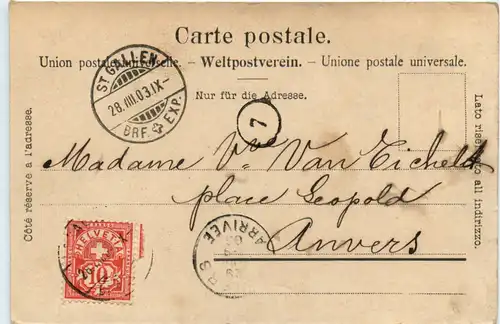 Carte postale.
Union postale universelle. - Weltpostverein. - Unione postale universale.
Nur für die Adresse.
Côté réservé à l'adresse.
Lato riservato all indirizzo.
ST. GALLEN
28.III.03.IX-
BRF. EXP.
7
Madame Vve Van Eichelt
place Léopold
Anvers
ARRIVÉE
HELVETIA
10